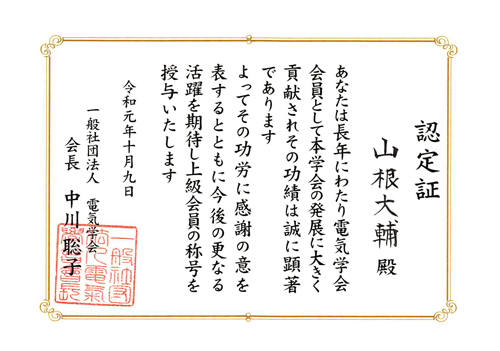 認定証
山根大輔 殿
あなたは長年にわたり電気学会
会員として本学会の発展に大きく
貢献されその功績は誠に顕著
であります
よってその功労に感謝の意を
表するとともに今後の更なる
活躍を期待し上級会員の称号を
授与いたします
令和元年十月九日
一般社団法人 電気学会
会長 中川聡子